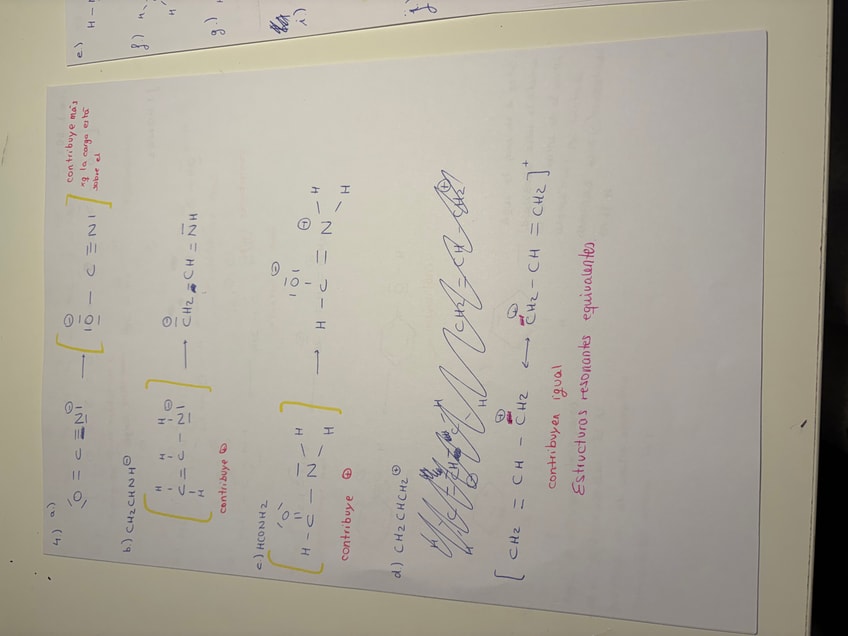 e) H –
f) H
g)
i)
4) a)
O = C = N ⊖ → [ ⊖ O – C ≡ N ]
contribuye más
xq la carga está
sobre el
b) CH2CHNH⊖
H H H ⊖
[ C = C – N ] → ⊖ CH2 – CH = NH
H
contribuye ⊕
c) HCONH2
[ H – C – N – H ] → H – C = N – H
O ⊖ O ⊕
H H
contribuye ⊕
d) CH2CHCH2⊕
[ CH2 = CH – CH2 ⊕ ⟷ ⊕ CH2 – CH = CH2 ]+
contribuyen igual
Estructuras resonantes equivalentes